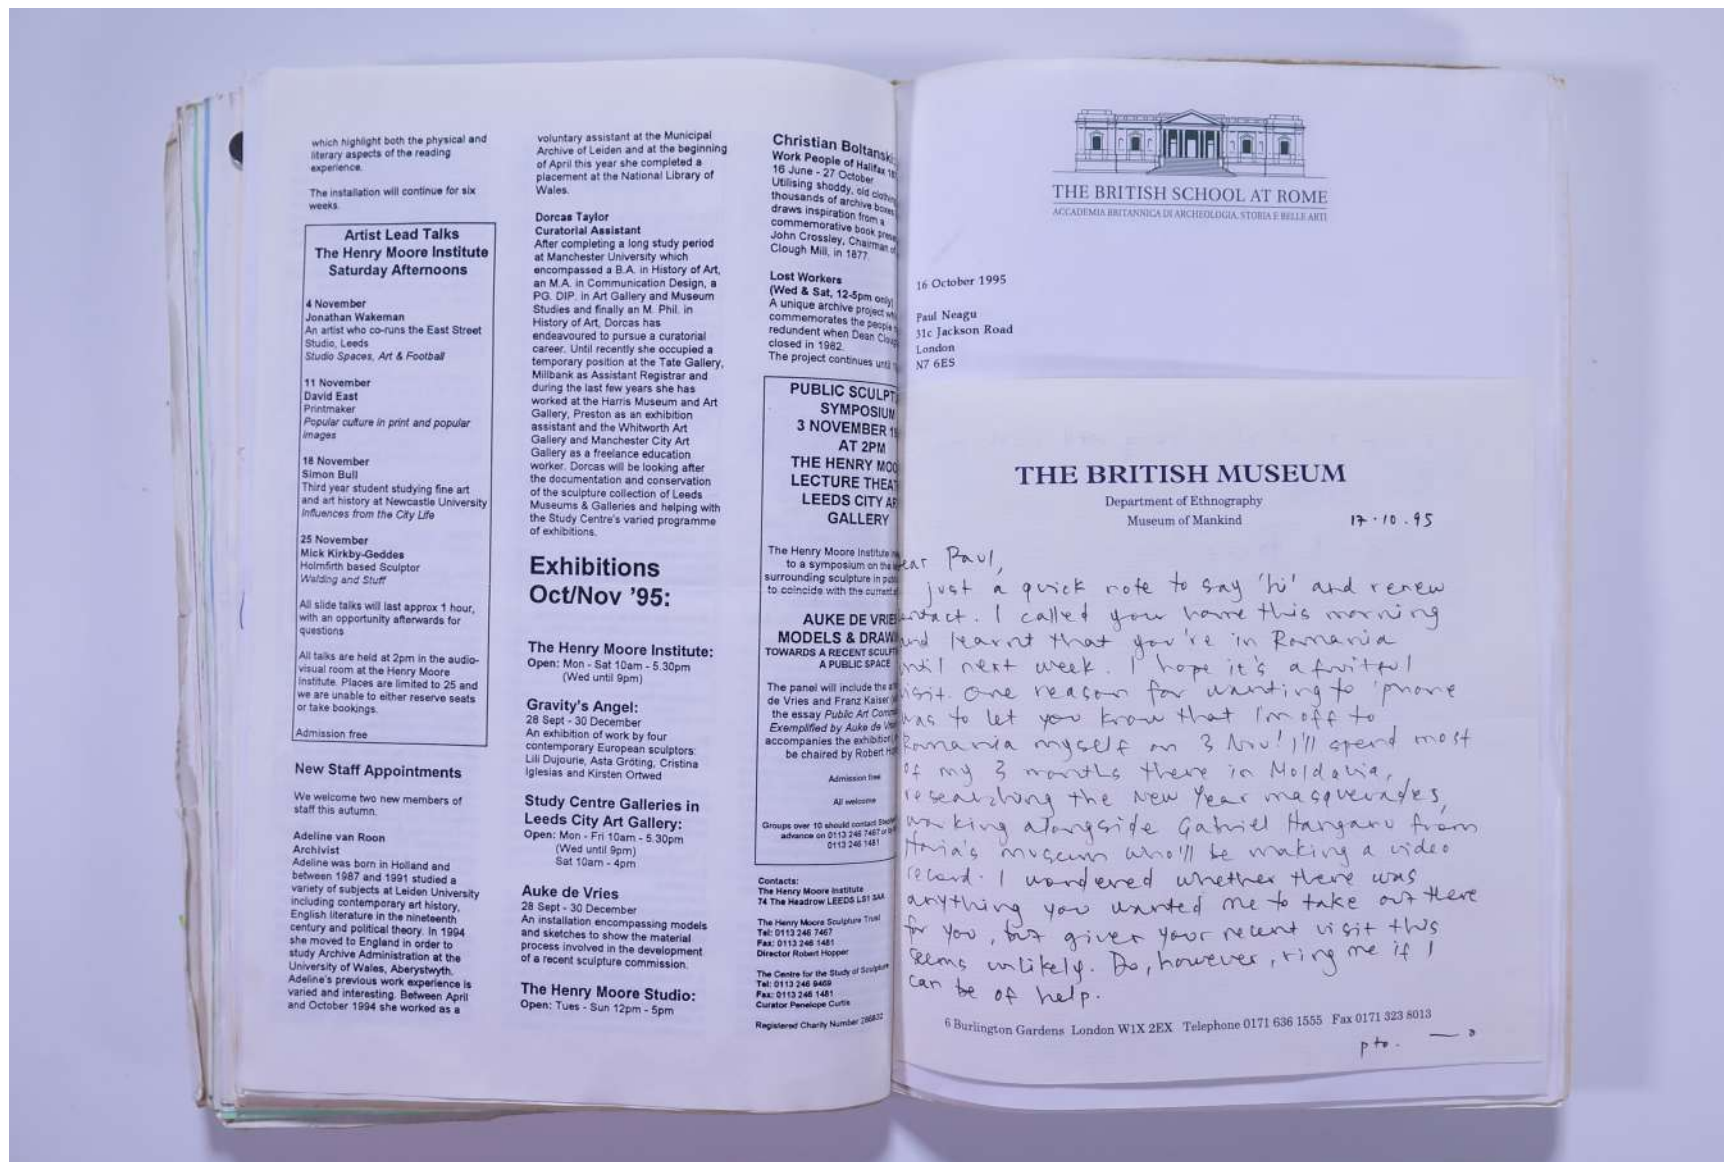 which highlight both the physical and
literary aspects of the reading
experience.
The installation will continue for six
weeks.
Artist Lead Talks
The Henry Moore Institute
Saturday Afternoons
4 November
Jonathan Wakeman
An artist who co-runs the East Street
Studio, Leeds
Studio Spaces, Art & Football
11 November
David East
Printmaker
Popular culture in print and popular
images
18 November
Simon Bull
Third year student studying fine art
and art history at Newcastle University
Influences from the City Life
25 November
Mick Kirkby-Geddes
Holmfirth based Sculptor
Walding and Stuff
All slide talks will last approx 1 hour,
with an opportunity afterwards for
questions
All talks are held at 2pm in the audio-
visual room at the Henry Moore
Institute. Places are limited to 25 and
we are unable to either reserve seats
or take bookings.
Admission free
New Staff Appointments
We welcome two new members of
staff this autumn.
Adeline van Roon
Archivist
Adeline was born in Holland and
between 1987 and 1991 studied a
variety of subjects at Leiden University
including contemporary art history,
English literature in the nineteenth
century and political theory. In 1994
she moved to England in order to
study Archive Administration at the
University of Wales, Aberystwyth.
Adeline's previous work experience is
varied and interesting. Between April
and October 1994 she worked as a
voluntary assistant at the Municipal
Archive of Leiden and at the beginning
of April this year she completed a
placement at the National Library of
Wales.
Dorcas Taylor
Curatorial Assistant
After completing a long study period
at Manchester University which
encompassed a B.A. in History of Art,
an M.A. in Communication Design, a
PG. DIP. in Art Gallery and Museum
Studies and finally an M. Phil. in
History of Art, Dorcas has
endeavoured to pursue a curatorial
career. Until recently she occupied a
temporary position at the Tate Gallery,
Millbank as Assistant Registrar and
during the last few years she has
worked at the Harris Museum and Art
Gallery, Preston as an exhibition
assistant and the Whitworth Art
Gallery and Manchester City Art
Gallery as a freelance education
worker. Dorcas will be looking after
the documentation and conservation
of the sculpture collection of Leeds
Museums & Galleries and helping with
the Study Centre's varied programme
of exhibitions.
Exhibitions
Oct/Nov '95:
The Henry Moore Institute:
Open: Mon - Sat 10am - 5.30pm
(Wed until 9pm)
Gravity's Angel:
28 Sept - 30 December
An exhibition of work by four
contemporary European sculptors:
Lili Dujourie, Asta Gröting, Cristina
Iglesias and Kirsten Ortwed
Study Centre Galleries in
Leeds City Art Gallery:
Open: Mon - Fri 10am - 5.30pm
(Wed until 9pm)
Sat 10am - 4pm
Auke de Vries
28 Sept - 30 December
An installation encompassing models
and sketches to show the material
process involved in the development
of a recent sculpture commission.
The Henry Moore Studio:
Open: Tues - Sun 12pm - 5pm
Christian Boltanski
Work People of Halifax
16 June - 27 October
Utilising shoddy, old
thousands of archive boxes
draws inspiration from a
commemorative book
John Crossley, Chairman of
Clough Mill, in 1877.
Lost Workers
(Wed & Sat, 12-5pm only)
A unique archive project
commemorates the people
redundent when Dean
closed in 1982.
The project continues until
PUBLIC
SYMPOSIUM
3 NOVEMBER
AT 2PM
THE HENRY
LECTURE
LEEDS CITY
GALLERY
The Henry Moore Institute
to a symposium on the
surrounding sculpture in
to coincide with the
AUKE DE
MODELS &
TOWARDS A RECENT
A PUBLIC SPACE
The panel will include the
de Vries and Franz Kaiser
the essay Public Art
Exemplified by Auke de
accompanies the
be chaired by Robert
Admission free
All welcome
Groups over 10 should contact
advance on 0113 246 7467 or
0113 246 1481
Contacts:
The Henry Moore Institute
74 The Headrow LEEDS LS1 3AA
The Henry Moore Sculpture Trust
Tel: 0113 246 7467
Fax: 0113 246 1481
Director Robert Hopper
The Centre for the Study of Sculpture
Tel: 0113 246 9469
Fax: 0113 246 1481
Curator Penelope Curtis
Registered Charity Number
THE BRITISH SCHOOL AT ROME
ACCADEMIA BRITANNICA DI ARCHEOLOGIA, STORIA E BELLE ARTI
16 October 1995
Paul Neagu
31c Jackson Road
London
N7 6ES
THE BRITISH MUSEUM
Department of Ethnography
Museum of Mankind
17.10.95
ear Paul,
just a quick note to say 'hi' and renew
contact. I called your home this morning
and learnt that you're in Romania
until next week. I hope it's a fruitful
visit. One reason for wanting to 'phone
was to let you know that I'm off to
Romania myself on 3 Nov! I'll spend most
of my 3 months there in Moldavia,
researching the New Year masquerades,
working alongside Gabriel Hanganu from
Horia's museum who'll be making a video
record. I wondered whether there was
anything you wanted me to take out there
for you, but given your recent visit this
seems unlikely. Do, however, ring me if I
can be of help.
6 Burlington Gardens London W1X 2EX Telephone 0171 636 1555 Fax 0171 323 8013
pto.